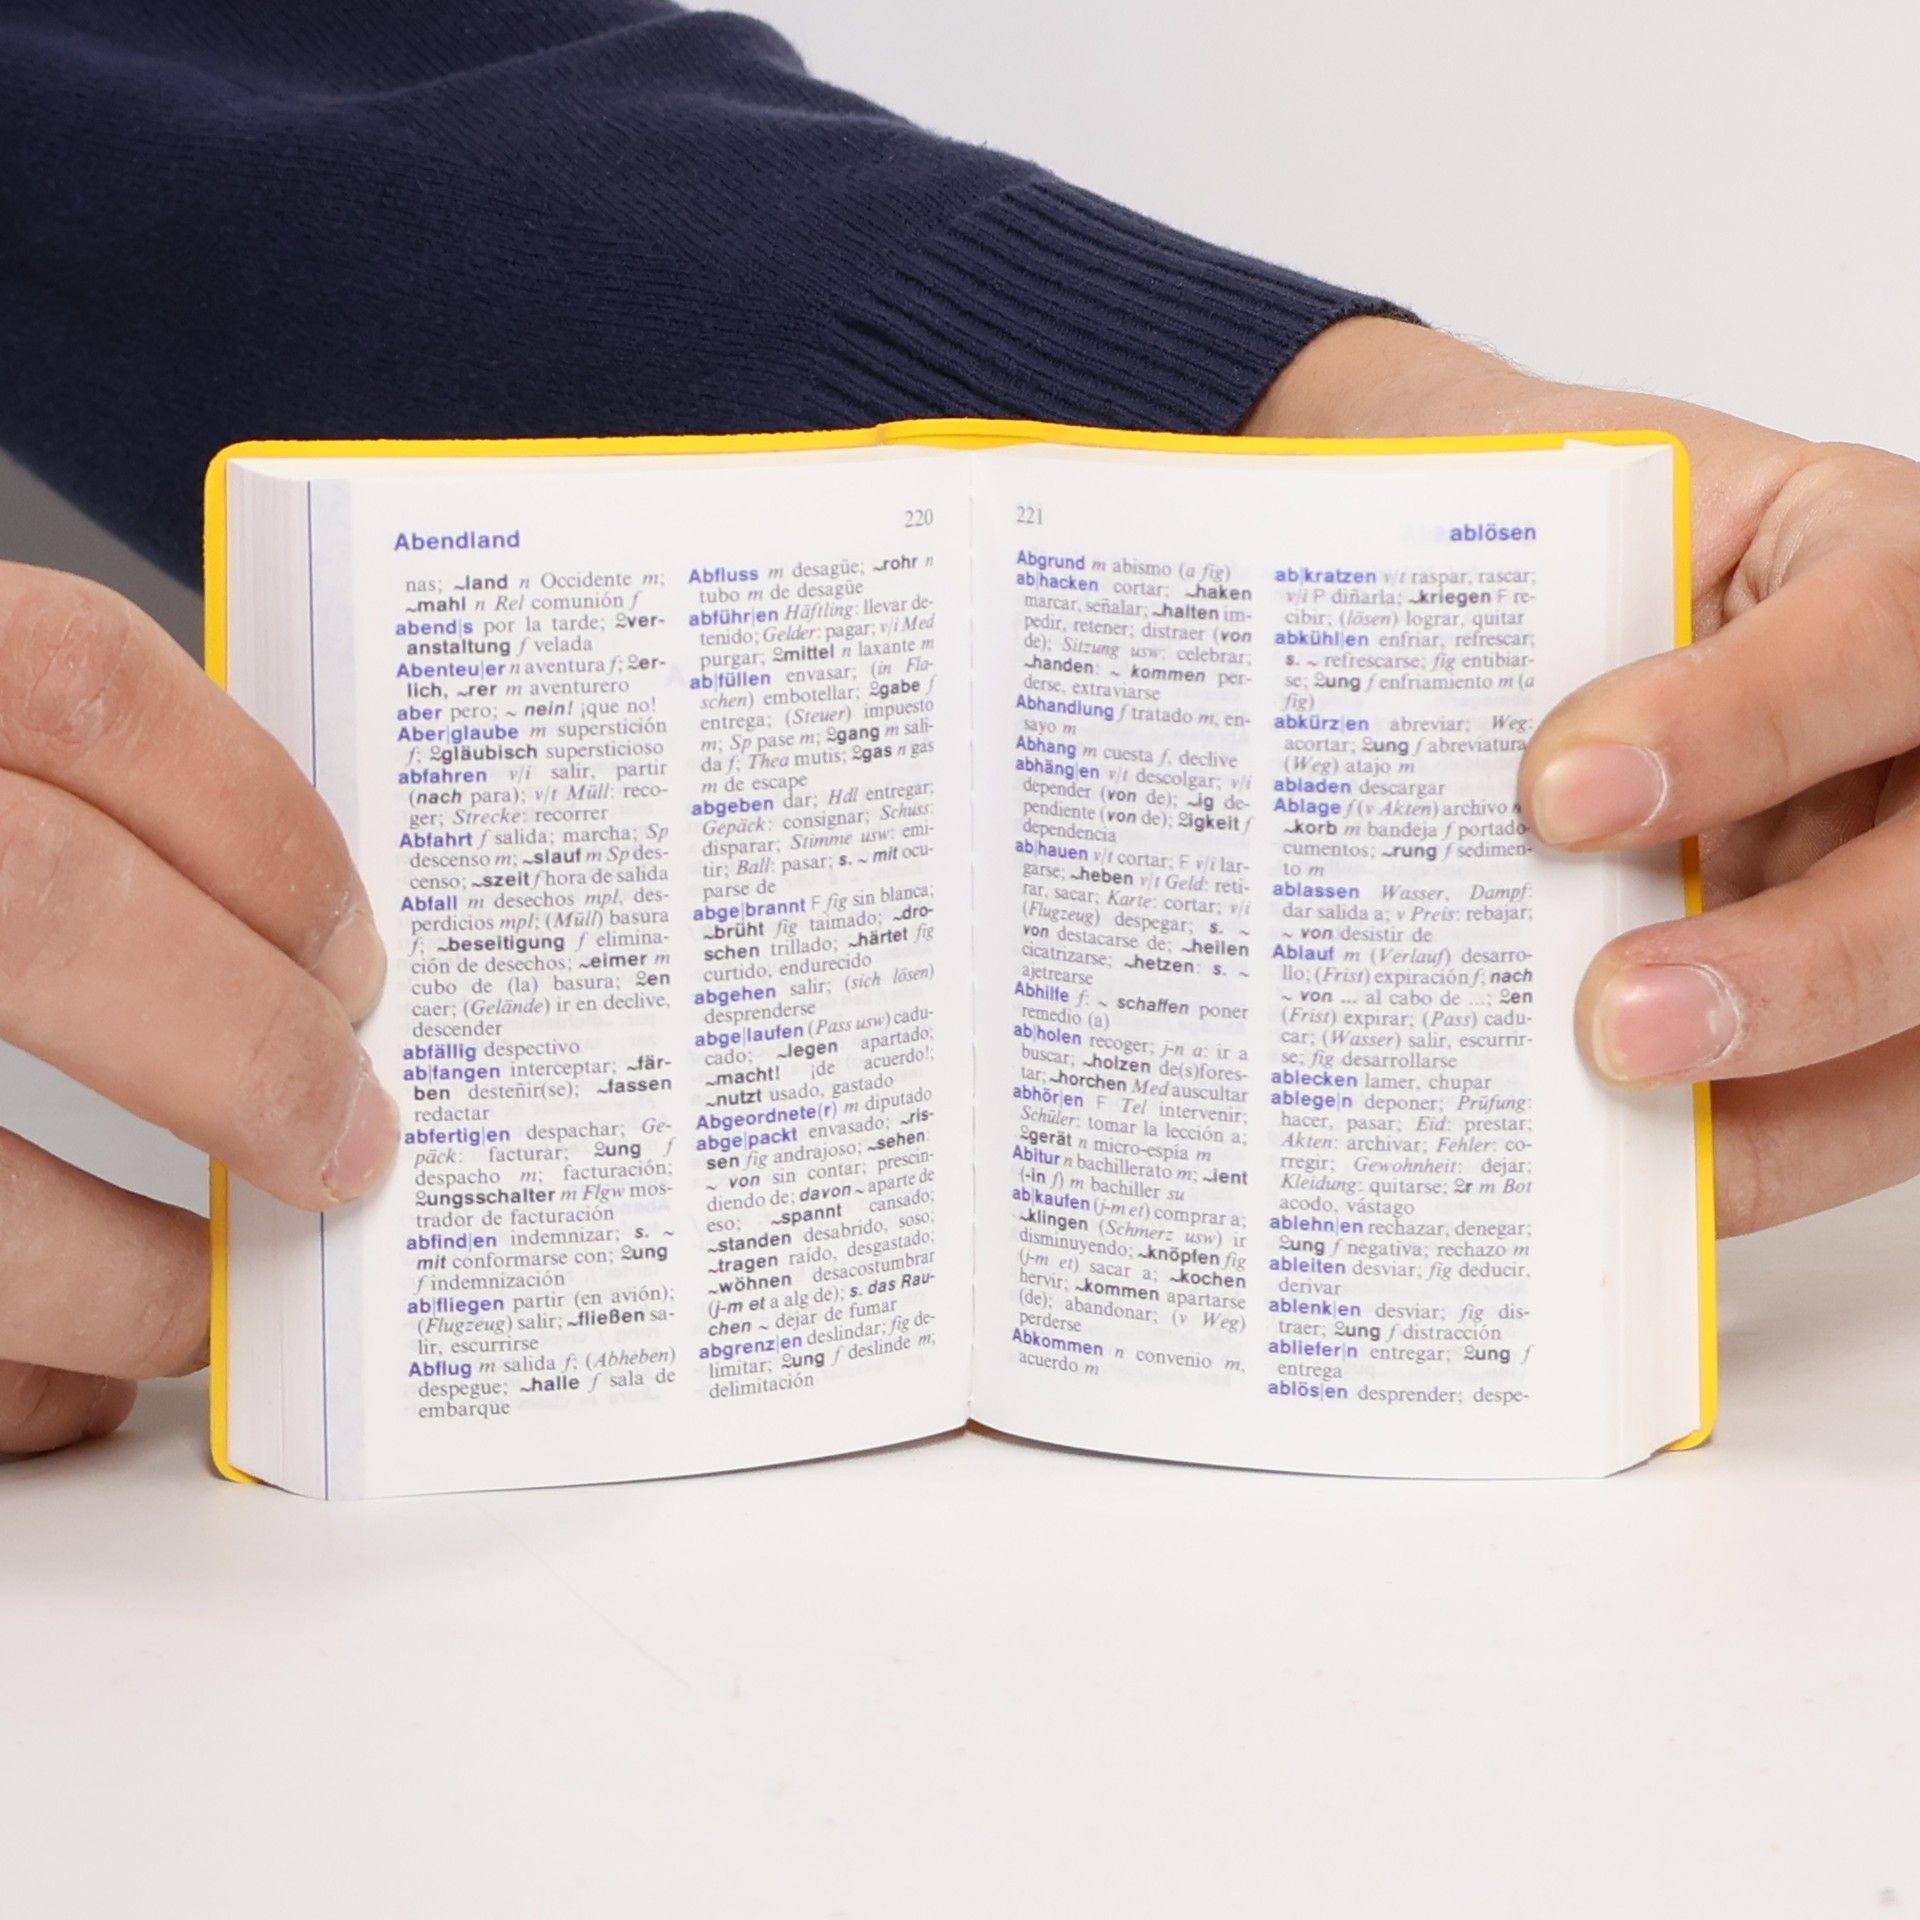 Abendland
220
nas; ~land n Occidente m;
~mahl n Rel comunión f
abend|s por la tarde; 2ver-
anstaltung f velada
Abenteu|er n aventura f; 2er-
lich, ~rer m aventurero
aber pero; ~ nein! ¡que no!
Aber|glaube m superstición
f; 2gläubisch supersticioso
abfahren v/i salir, partir
(nach para); v/t Müll: reco-
ger; Strecke: recorrer
Abfahrt f salida; marcha; Sp
descenso m; ~slauf m Sp des-
censo; ~szeit f hora de salida
Abfall m desechos mpl, des-
perdicios mpl; (Müll) basura
f; ~beseitigung f elimina-
ción de desechos; ~eimer m
cubo de (la) basura; 2en
caer; (Gelände) ir en declive,
descender
abfällig despectivo
ab|fangen interceptar; ~fär-
ben desteñir(se); ~fassen
redactar
abfertig|en despachar; Ge-
päck: facturar; 2ung f
despacho m; facturación;
2ungsschalter m Flgw mos-
trador de facturación
abfind|en indemnizar; s. ~
mit conformarse con; 2ung
f indemnización
ab|fliegen partir (en avión);
(Flugzeug) salir; ~fließen sa-
lir, escurrirse
Abflug m salida f; (Abheben)
despegue; ~halle f sala de
embarque
Abfluss m desagüe; ~rohr n
tubo m de desagüe
abführ|en Häftling: llevar de-
tenido; Gelder: pagar; v/i Med
purgar; 2mittel n laxante m
ab|füllen envasar; (in Fla-
schen) embotellar; 2gabe f
entrega; (Steuer) impuesto
m; Sp pase m; 2gang m sali-
da f; Thea mutis; 2gas n gas
m de escape
abgeben dar; Hdl entregar;
Gepäck: consignar; Schuss:
disparar; Stimme usw: emi-
tir; Ball: pasar; s. ~ mit ocu-
parse de
abge|brannt F fig sin blanca;
~brüht fig taimado; ~dro-
schen trillado; ~härtet fig
curtido, endurecido
abgehen salir; (sich lösen)
desprenderse
abge|laufen (Pass usw) cadu-
cado; ~legen apartado;
~macht! ¡de acuerdo!;
~nutzt usado, gastado
Abgeordnete(r) m diputado
abge|packt envasado; ~ris-
sen fig andrajoso; ~sehen:
~ von sin contar; prescin-
diendo de; davon ~ aparte de
eso; ~spannt cansado;
~standen desabrido, soso;
~tragen raído, desgastado;
~wöhnen desacostumbrar
(j-m et a alg de); s. das Rau-
chen ~ dejar de fumar
abgrenz|en deslindar; fig de-
limitar; 2ung f deslinde m;
delimitación
221
ablösen
Abgrund m abismo (a fig)
ab|hacken cortar; ~haken
marcar, señalar; ~halten im-
pedir, retener; distraer (von
de); Sitzung usw: celebrar;
~handen: ~ kommen per-
derse, extraviarse
Abhandlung f tratado m, en-
sayo m
Abhang m cuesta f, declive
abhäng|en v/t descolgar; v/i
depender (von de); ~ig de-
pendiente (von de); 2igkeit f
dependencia
ab|hauen v/t cortar; F v/i lar-
garse; ~heben v/t Geld: reti-
rar, sacar; Karte: cortar; v/i
(Flugzeug) despegar; s. ~
von destacarse de; ~heilen
cicatrizarse; ~hetzen: s. ~
ajetrearse
Abhilfe f: ~ schaffen poner
remedio (a)
ab|holen recoger; j-n a: ir a
buscar; ~holzen de(s)fores-
tar; ~horchen Med auscultar
abhör|en F Tel intervenir;
Schüler: tomar la lección a;
2gerät n micro-espía m
Abitur n bachillerato m; ~ient
(-in f) m bachiller su
ab|kaufen (j-m et) comprar a;
~klingen (Schmerz usw) ir
disminuyendo; ~knöpfen fig
(j-m et) sacar a; ~kochen
hervir; ~kommen apartarse
(de); abandonar; (v Weg)
perderse
Abkommen n convenio m,
acuerdo m
ab|kratzen v/t raspar, rascar;
v/i P diñarla; ~kriegen F re-
cibir; (lösen) lograr, quitar
abkühl|en enfriar, refrescar;
s. ~ refrescarse; fig entibiar-
se; 2ung f enfriamiento m (a
fig)
abkürz|en abreviar; Weg:
acortar; 2ung f abreviatura
(Weg) atajo m
abladen descargar
Ablage f (v Akten) archivo
~korb m bandeja f portado-
cumentos; ~rung f sedimen-
to m
ablassen Wasser, Dampf:
dar salida a; v Preis: rebajar;
~ von desistir de
Ablauf m (Verlauf) desarro-
llo; (Frist) expiración f; nach
~ von ... al cabo de ...; 2en
(Frist) expirar; (Pass) cadu-
car; (Wasser) salir, escurrir-
se; fig desarrollarse
ablecken lamer, chupar
ablege|n deponer; Prüfung:
hacer, pasar; Eid: prestar;
Akten: archivar; Fehler: co-
rregir; Gewohnheit: dejar;
Kleidung: quitarse; 2r m Bot
acodo, vástago
ablehn|en rechazar, denegar;
2ung f negativa; rechazo m
ableiten desviar; fig deducir,
derivar
ablenk|en desviar; fig dis-
traer; 2ung f distracción
abliefer|n entregar; 2ung f
entrega
ablös|en desprender; despe-